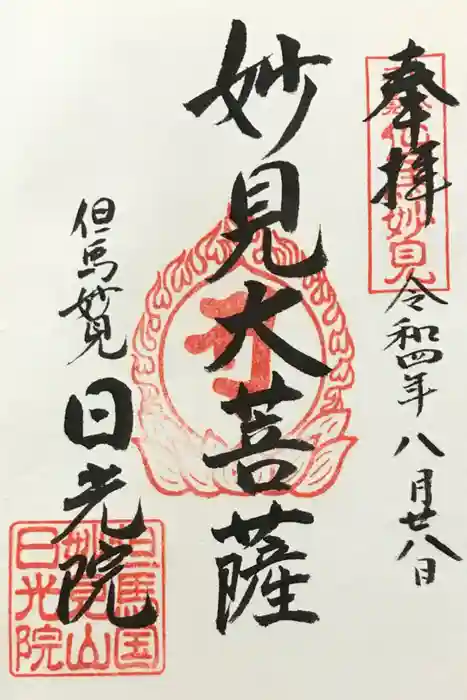 奉拝
令和四年八月廿八日
妙見大菩薩
但馬妙見
日光院
但馬国
妙見山
日光院